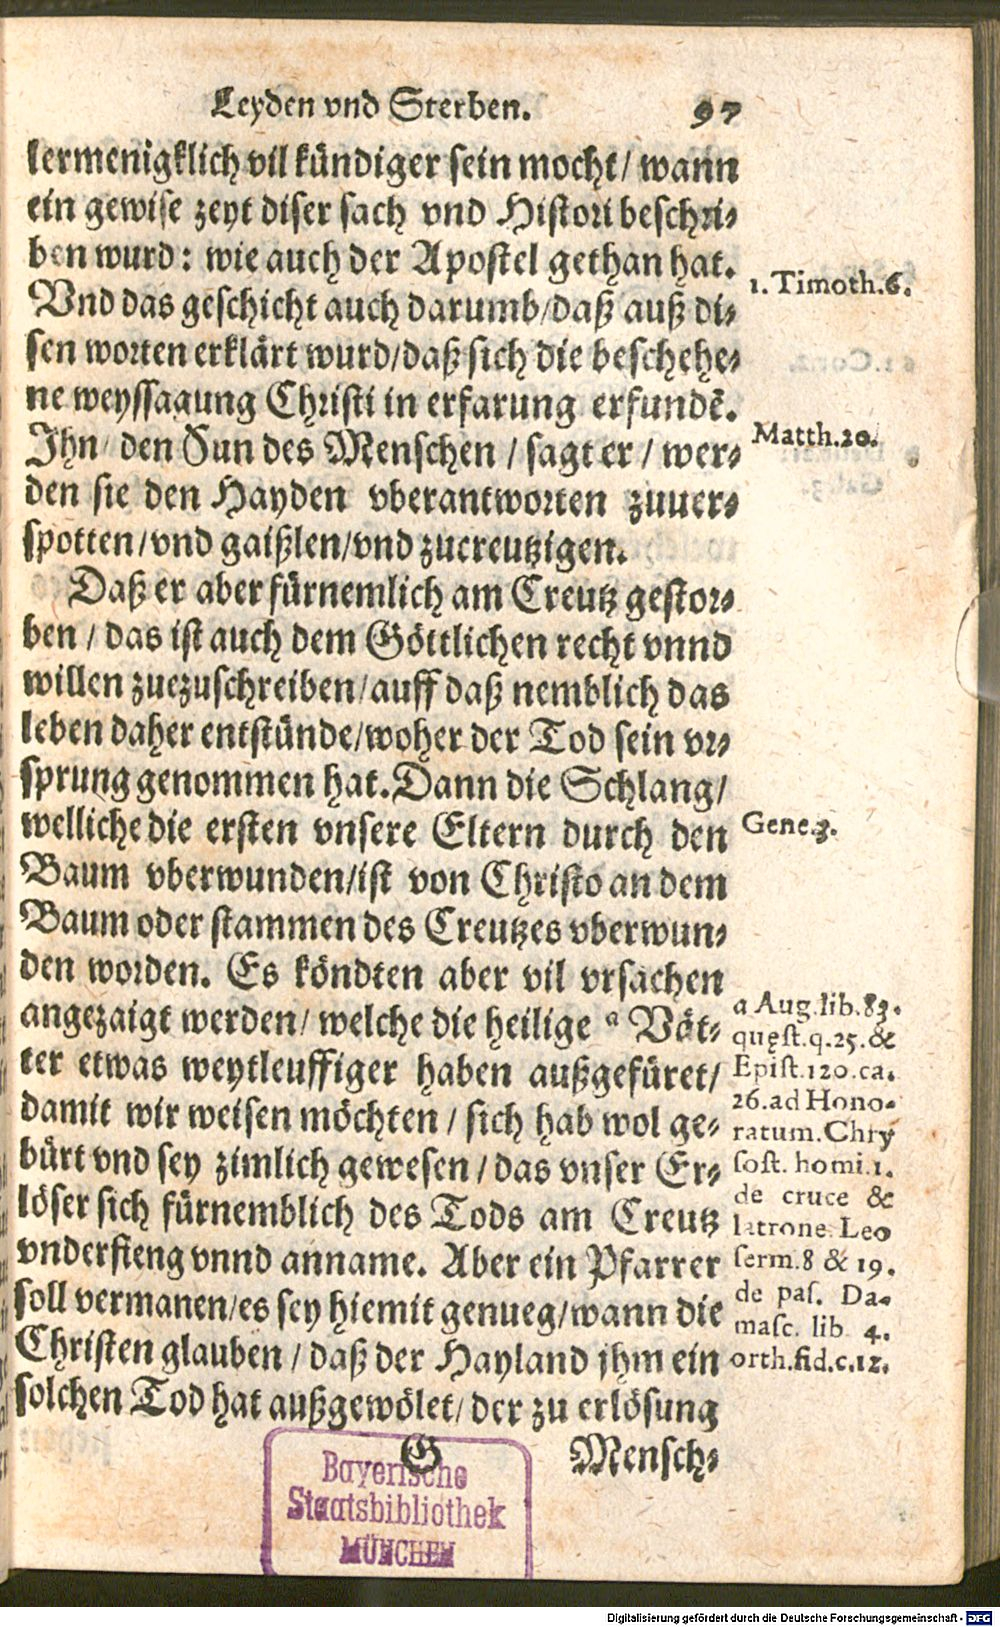 Leyden vnd Sterben. 97
lermenigklich vil kündiger sein mocht/ wann
ein gewise zeyt diser sach vnd Histori beschri-
ben wurd: wie auch der Apostel gethan hat.
1. Timoth. 6.
Vnd das geschicht auch darumb/daß auß di-
sen worten erklärt wurd/daß sich die beschehe-
ne weyssagung Christi in erfarung erfundẽ.
Matth. 20.
Ihn den Sun des Menschen / sagt er / wer-
den sie den Hayden vberantworten zuuer-
spotten/vnd gaißlen/vnd zucreutzigen.
Daß er aber fürnemlich am Creutz gestor-
ben / das ist auch dem Göttlichen recht vnnd
willen zuezuschreiben/auff daß nemblich das
leben daher entstünde/woher der Tod sein vr-
sprung genommen hat. Dann die Schlang/
welliche die ersten vnsere Eltern durch den
Gene. 3.
Baum vberwunden/ist von Christo an dem
Baum oder stammen des Creutzes vberwun-
den worden. Es köndten aber vil vrsachen
angezaigt werden/ welche die heilige a Vät-
ter etwas weytleuffiger haben außgefüret/
damit wir weisen möchten / sich hab wol ge-
bürt vnd sey zimlich gewesen / das vnser Er-
löser sich fürnemblich des Tods am Creutz
vnderfieng vnnd anname. Aber ein Pfarrer
soll vermanen/es sey hiemit genueg/wann die
Christen glauben / daß der Hayland jhm ein
solchen Tod hat außgewölet/ der zu erlösung
a Aug. lib. 83.
quęst. q. 25. &
Epist. 120. ca.
26. ad Hono-
ratum. Chry
sost. homi. 1.
de cruce &
latrone. Leo
serm. 8 & 19.
de pas. Da-
masc. lib 4.
orth. fid. c. 12.
G Mensch-
Bayerische
Staatsbibliothek
MÜNCHEN
Digitalisierung gefördert durch die Deutsche Forschungsgemeinschaft - DFG